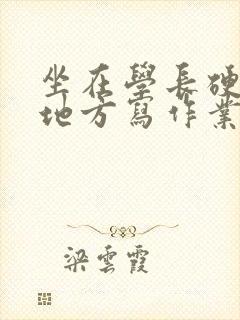 坐在學長硬
地方寫作業
梁雲霞